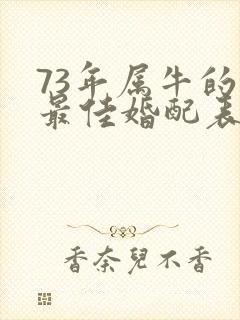 73年属牛的
最佳婚配表
香奈兒不香